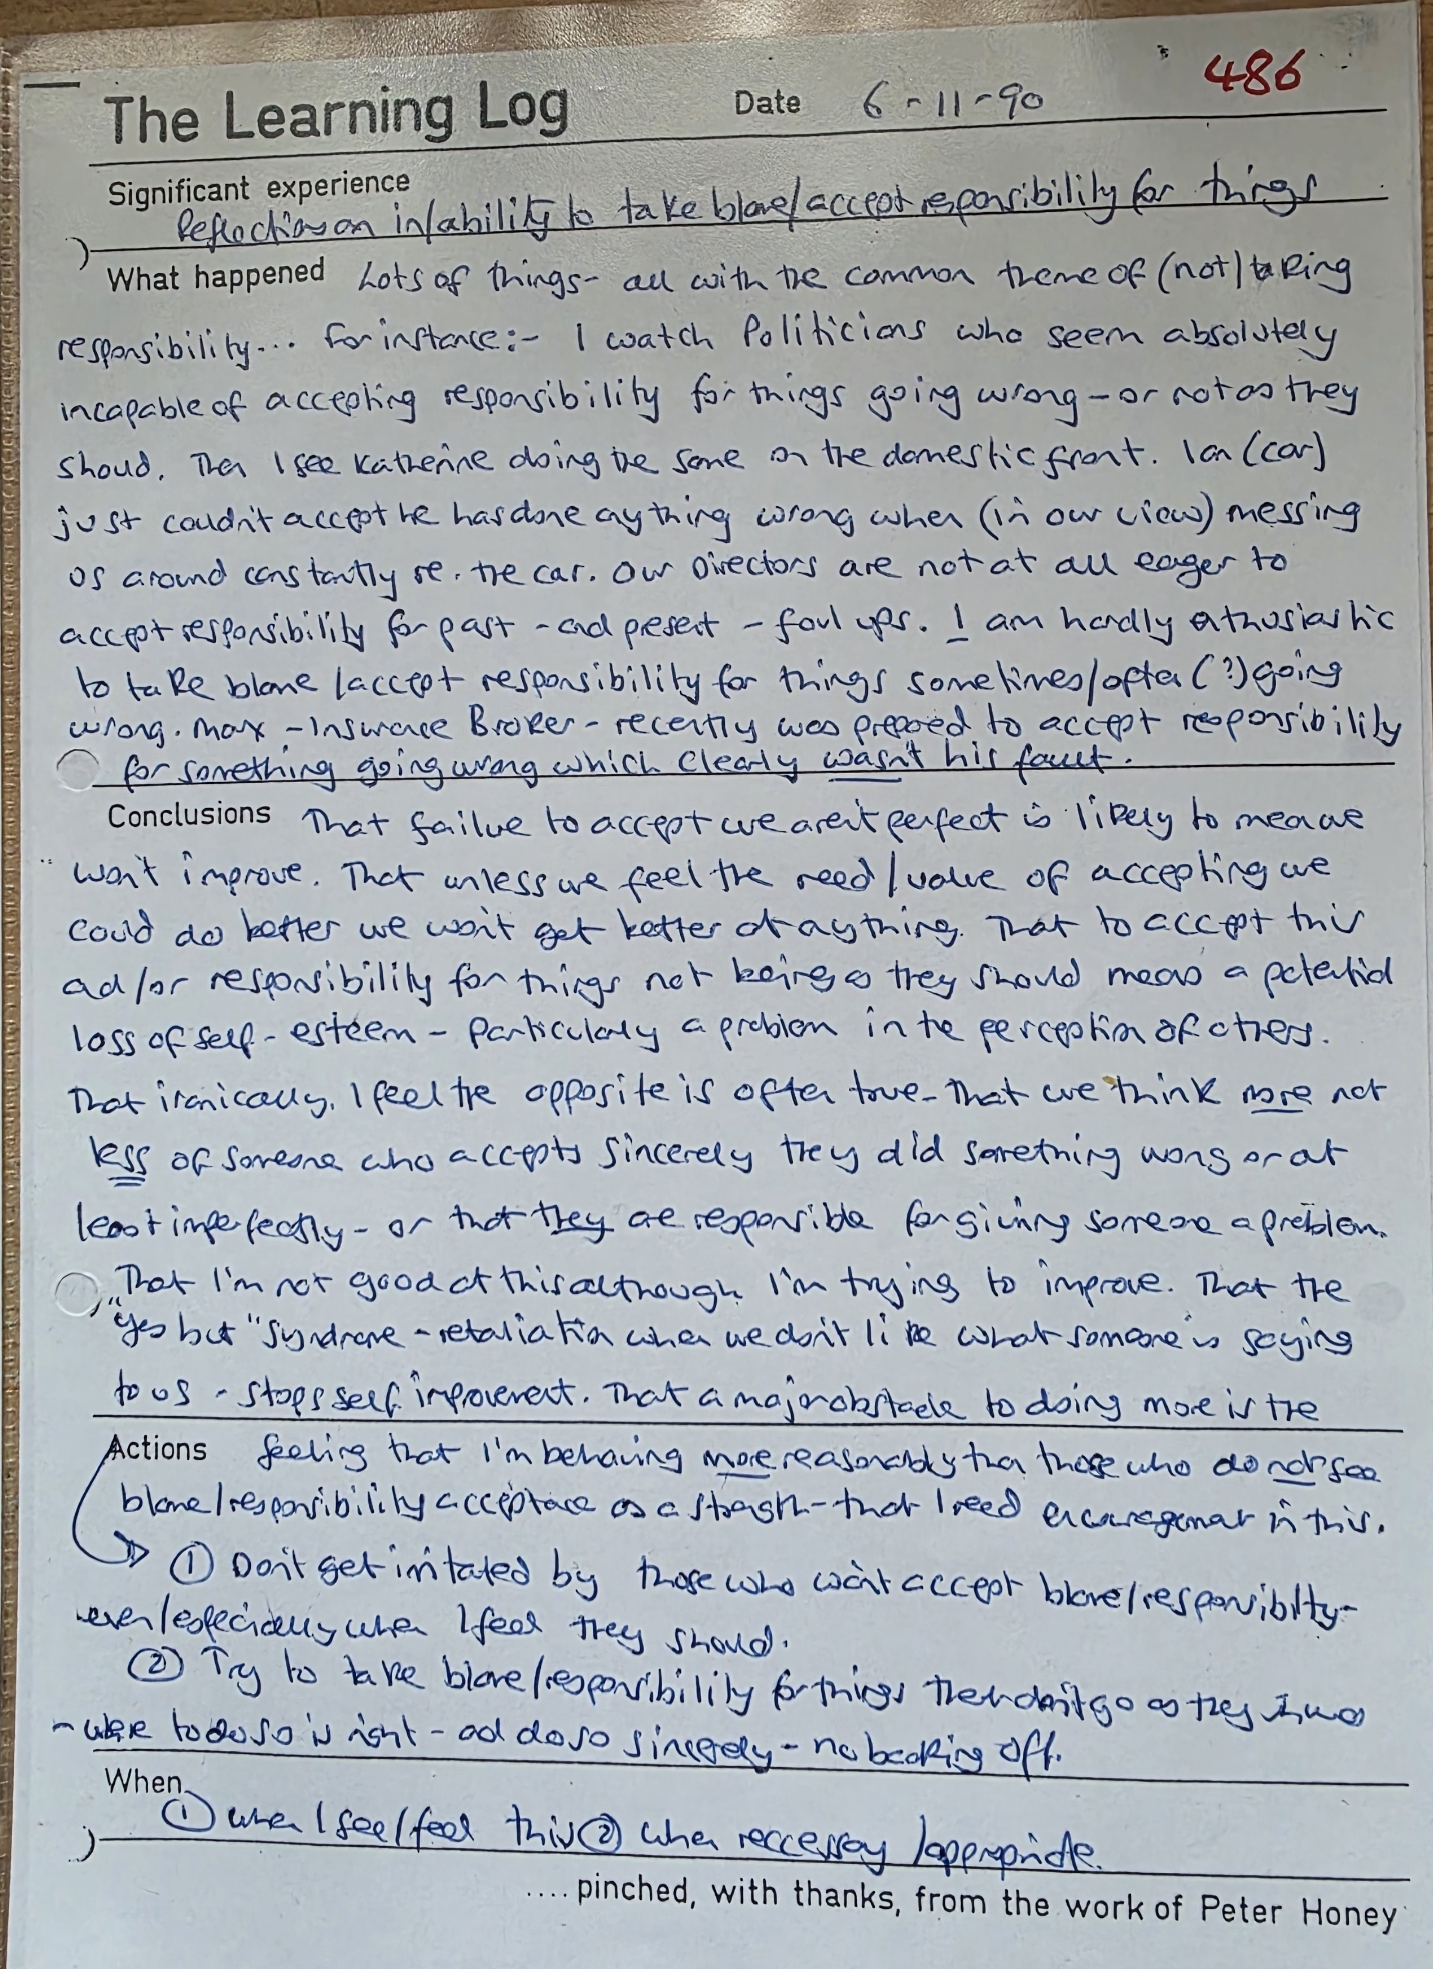 486
The Learning Log Date 6-11-90
Significant experience
Reflections on in/ability to take blame/accept responsibility for things
What happened Lots of things - all with the common theme of (not) taking
responsibility... For instance:- I watch Politicians who seem absolutely
incapable of accepting responsibility for things going wrong - or not as they
shoud. Then I see Katherine doing the same on the domestic front. Ian (car)
just couldn't accept he has done anything wrong when (in our view) messing
us around constantly re. the car. Our Directors are not at all eager to
accept responsibility for past - and present - foul ups. I am hardly enthusiastic
to take blame/accept responsibility for things sometimes/often (?) going
wrong. Max - Insurance Broker - recently was prepared to accept responsibility
for something going wrong which clearly wasn't his fault.
Conclusions That failure to accept we aren't perfect is likely to mean we
won't improve. That unless we feel the need/value of accepting we
could do better we won't get better at anything. That to accept this
and/or responsibility for things not being as they should means a potential
loss of self-esteem - particularly a problem in the perception of others.
That ironically, I feel the opposite is often true - that we think more not
less of someone who accepts sincerely they did something wrong or at
least imperfectly - or that they are responsible for giving someone a problem.
That I'm not good at this although I'm trying to improve. That the
"Yes but" syndrome - retaliation when we don't like what someone is saying
to us - stops self improvement. That a major obstacle to doing more is the
Actions feeling that I'm behaving more reasonably than those who do not see
blame/responsibility acceptance as a strength - that I need encouragement in this.
① Don't get irritated by those who won't accept blame/responsibilty -
even/especially when I feel they should.
② Try to take blame/responsibility for things that don't go as they
- where to do so is right - and do so sincerely - no backing off.
When
① when I see/feel this ② when neccessary/appropriate.
.... pinched, with thanks, from the work of Peter Honey